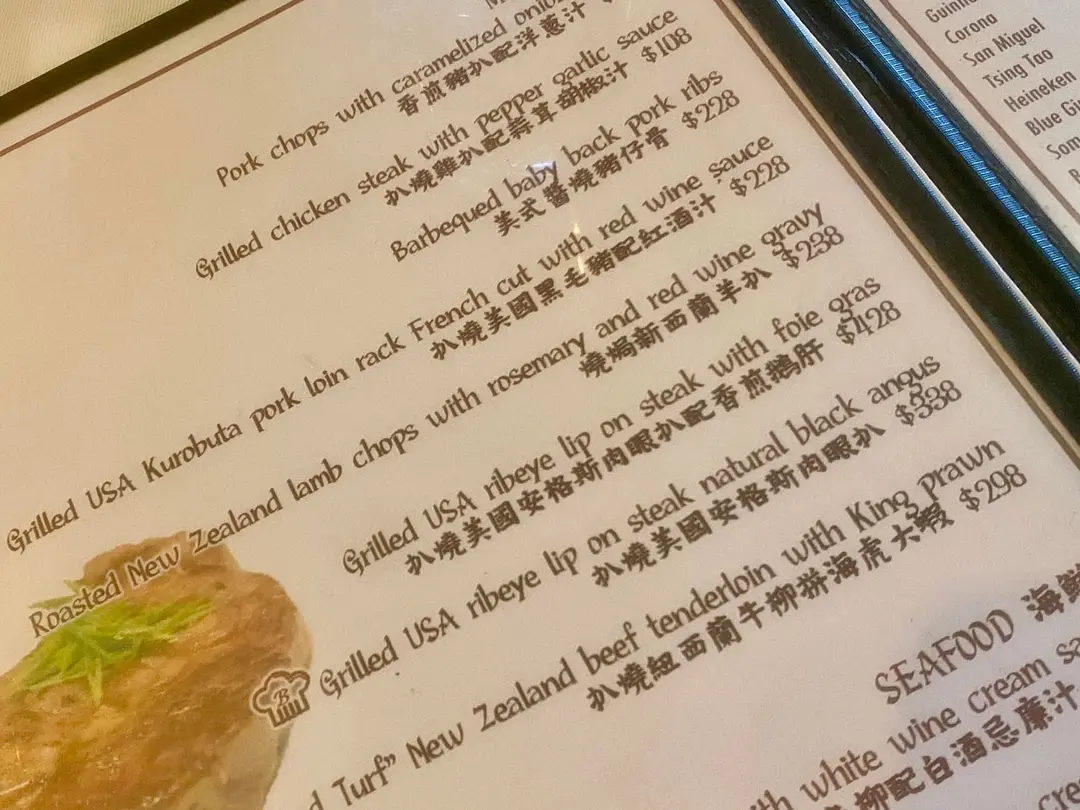 Pork chops with caramelized onion
香煎豬扒配洋蔥汁
Grilled chicken steak with pepper garlic sauce
扒燒雞扒配蒜茸胡椒汁 $108
Barbequed baby back pork ribs
美式醬燒豬仔骨 $228
Grilled USA Kurobuta pork loin rack French cut with red wine sauce
扒燒美國黑毛豬配紅酒汁 $228
Roasted New Zealand lamb chops with rosemary and red wine gravy
燒焗新西蘭羊扒 $238
Grilled USA ribeye lip on steak with foie gras
扒燒美國安格斯肉眼扒配香煎鵝肝 $428
Grilled USA ribeye lip on steak natural black angus
扒燒美國安格斯肉眼扒 $338
Turf" New Zealand beef tenderloin with King prawn
扒燒紐西蘭牛柳拼海虎大蝦 $298
SEAFOOD 海鮮
white wine cream
柳配白酒忌廉汁
Corona
San Miguel
Tsing Tao
Heineken
Blue